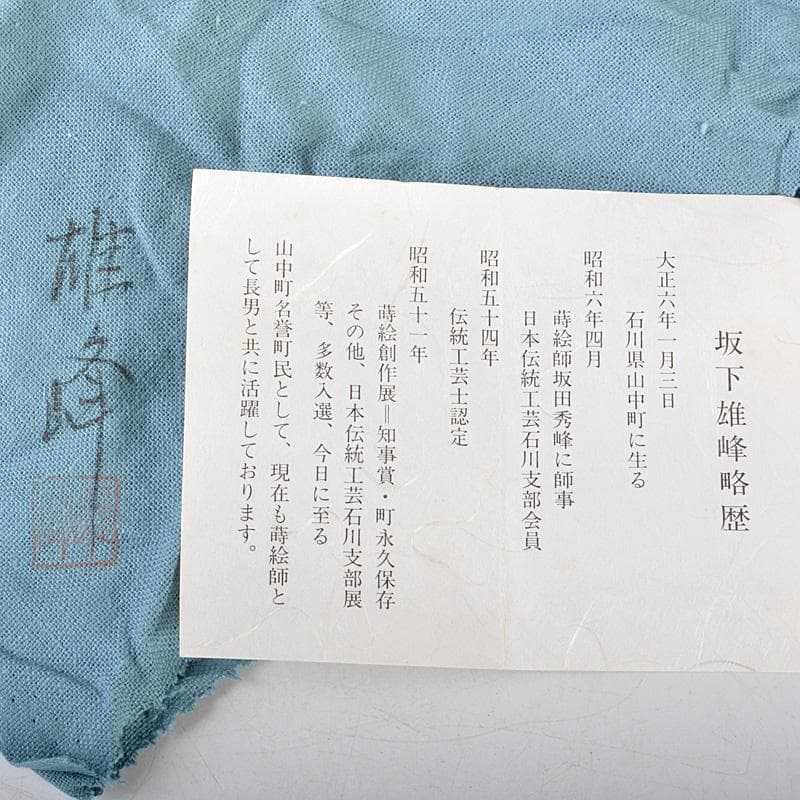 坂下雄峰略歴
大正六年一月三日
石川県山中町に生る
昭和六年四月
蒔絵師坂田秀峰に師事
日本伝統工芸石川支部会員
昭和五十四年
伝統工芸士認定
昭和五十一年
蒔絵創作展＝知事賞・町永久保存
その他、日本伝統工芸石川支部展
等、多数入選、今日に至る
山中町名誉町民として、現在も蒔絵師と
して長男と共に活躍しております。
雄峰